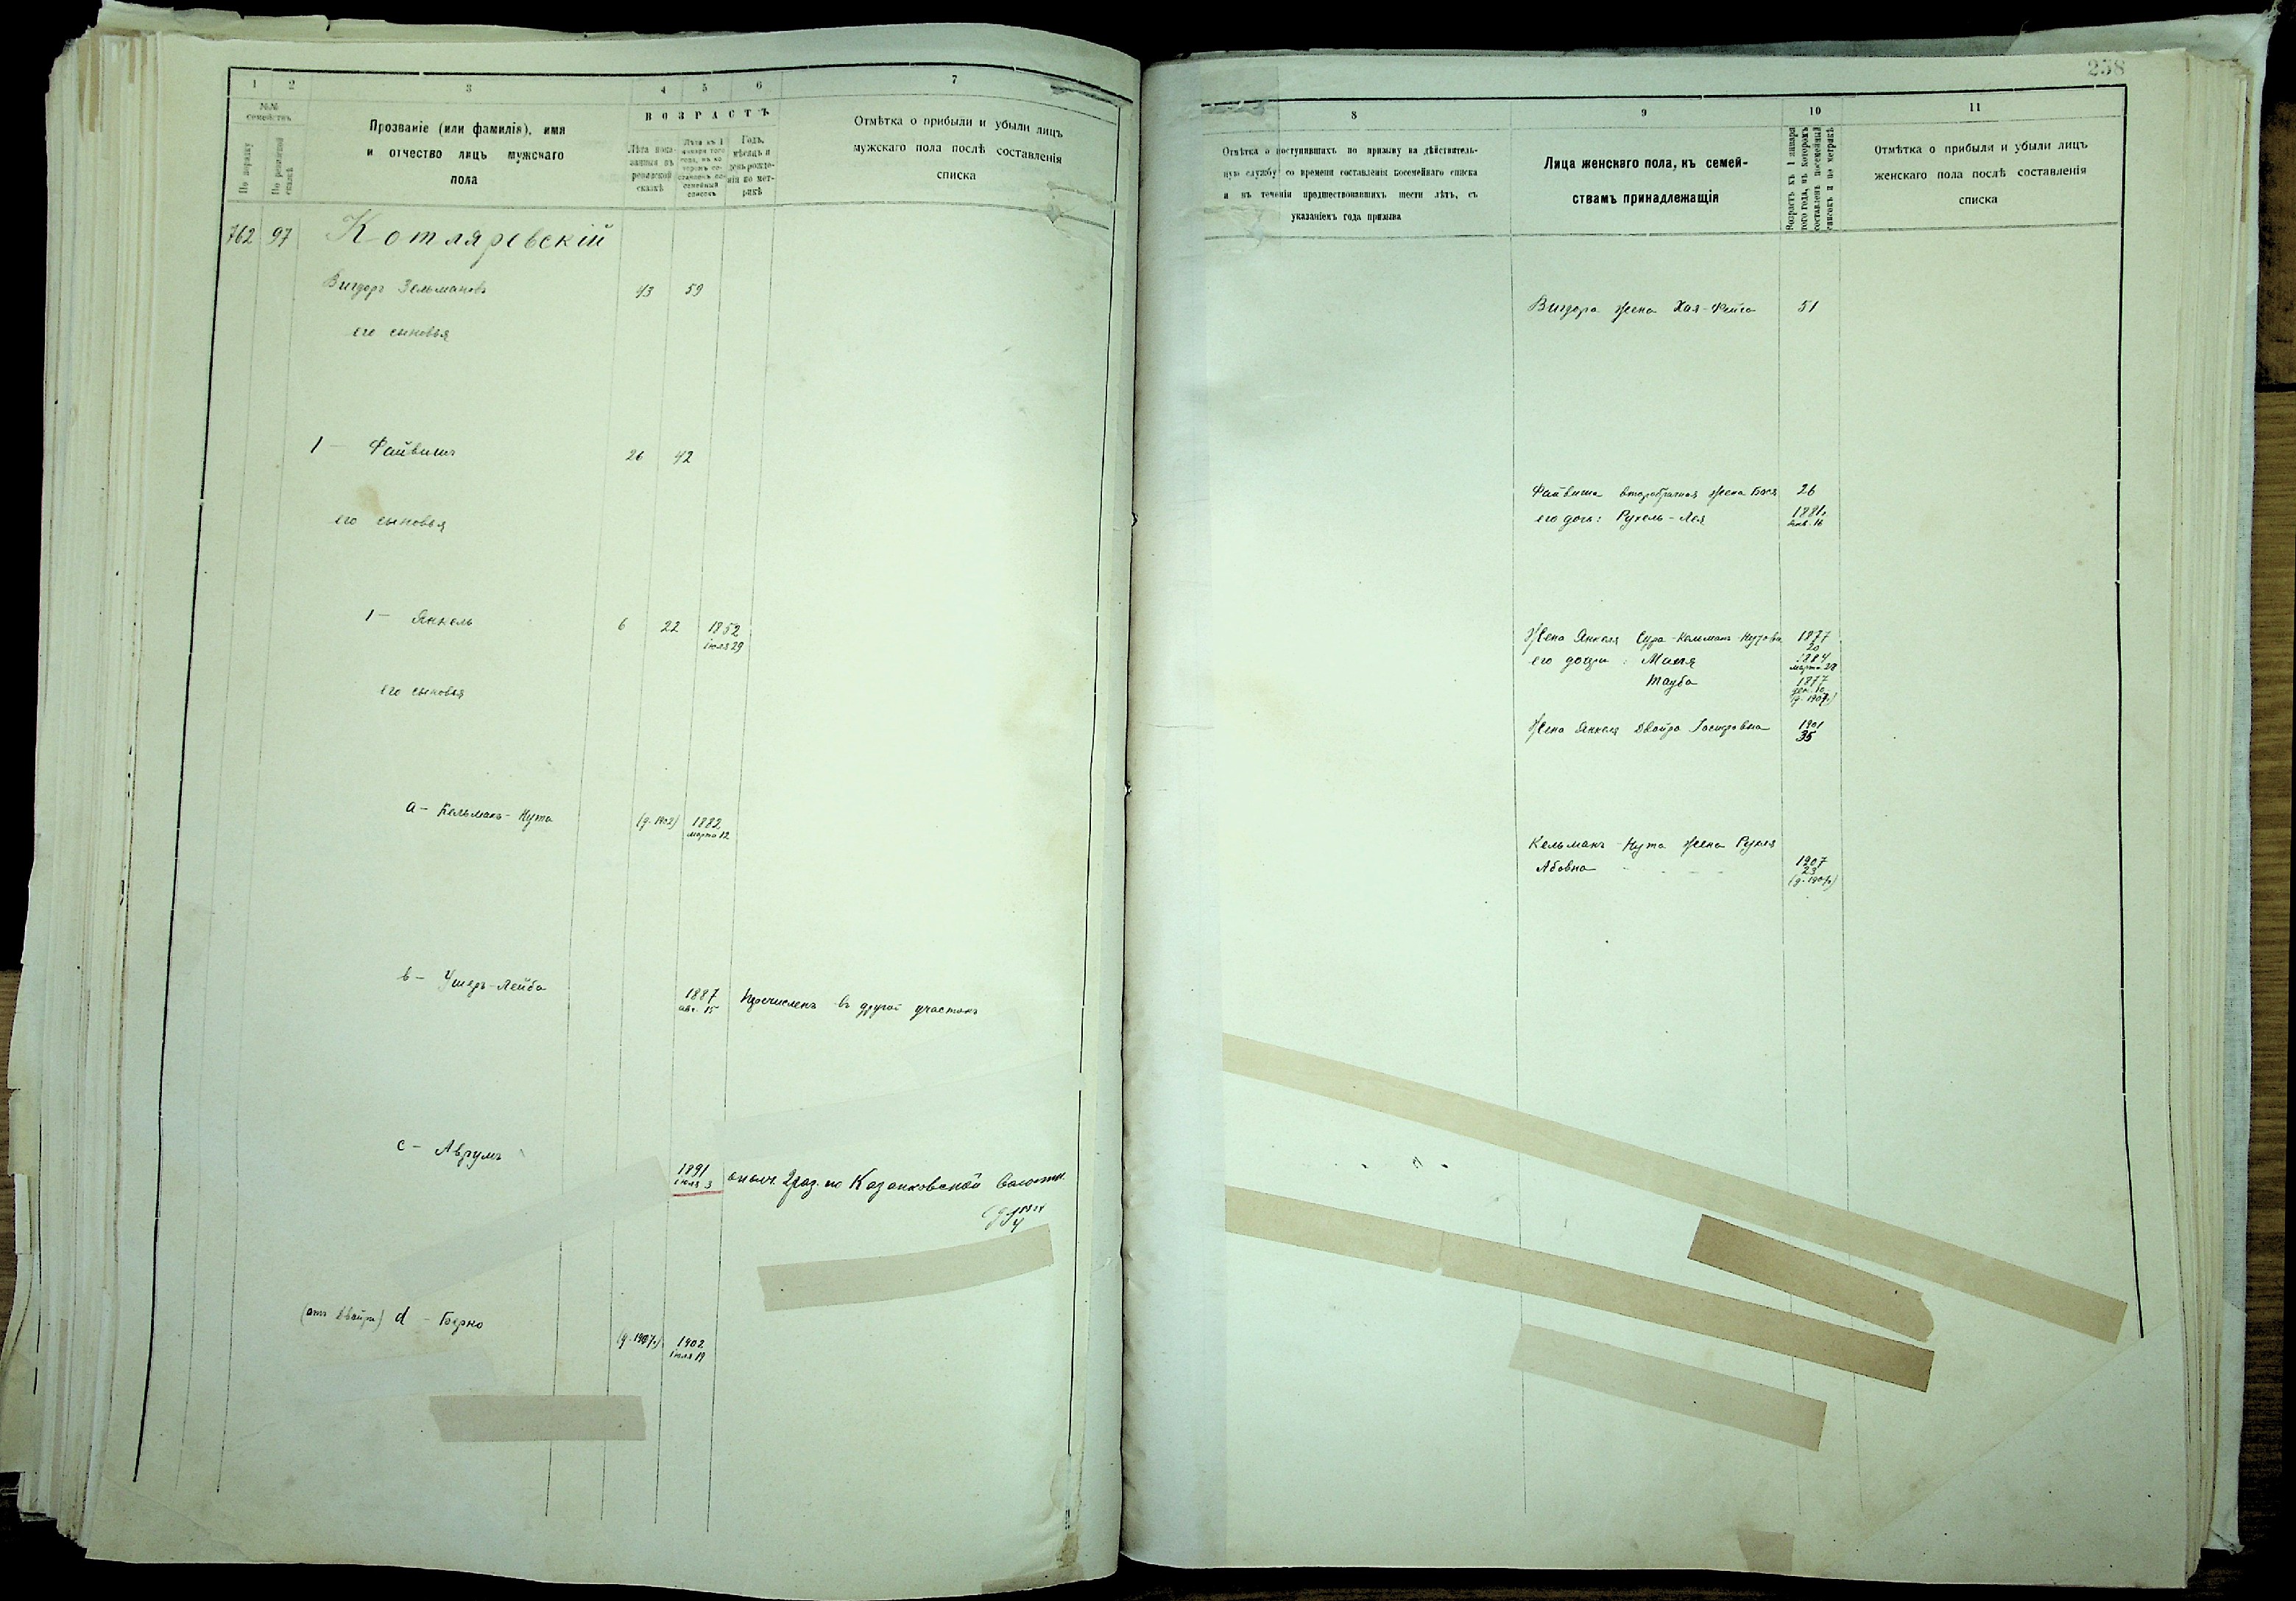 1 2 3 4 5 6 7
№№ семействъ
По порядку
По ревизской сказкѣ
Прозваніе (или фамилія), имя
и отчество лицъ мужскаго
пола
ВОЗРАСТЪ
Лѣта пока-
занныя въ
ревизской
сказкѣ
Лѣта къ 1
января того
года, въ ко-
торомъ со-
ставленъ по-
семейный
списокъ
Годъ,
мѣсяцъ и
день рожде-
нія по мет-
рикѣ
Отмѣтка о прибыли и убыли лицъ
мужскаго пола послѣ составленія
списка
762 97 Котляревскій
Вигдоръ Зельмановъ 43 59
его сыновья
1 — Файвишъ 26 42
его сыновья
1 — Янкель 6 22 1852
іюля 29
его сыновья
а — Кельманъ-Нута (д. 1902) 1882
марта 12
b — Ушеръ-Лейба 1887
авг. 15
Перечисленъ въ другой участокъ
с — Аврумъ 1891
іюля 3
ополч. 2 раз. по Казанковской волости
(отъ Двойры) d — Берко (д. 1907г.) 1902
іюля 19
258
8 9 10 11
Отмѣтка о поступившихъ по призыву на дѣйствитель-
ную службу со времени составленія посемейнаго списка
и въ теченіи предшествовавшихъ шести лѣтъ, съ
указаніемъ года призыва
Лица женскаго пола, къ семей-
ствамъ принадлежащія
Возрастъ къ 1 января
того года, въ которомъ
составленъ посемейный
списокъ и по метрикѣ
Отмѣтка о прибыли и убыли лицъ
женскаго пола послѣ составленія
списка
Вигдора жена Хая-Фейга 51
Файвиша второбрачная жена Бася 26
его дочь: Рухель-Лея 1881г.
янв. 16
Жена Янкеля Сура Кельманъ-Нутовна 1877
20
его дочери: Маля 1884
марта 28
Тауба 1877
дек. 10
(д. 1907г.)
Жена Янкеля Двойра Іосифовна 1901
35
Кельманъ-Нута жена Рухля
Абовна 1907
23
(д. 1907г.)